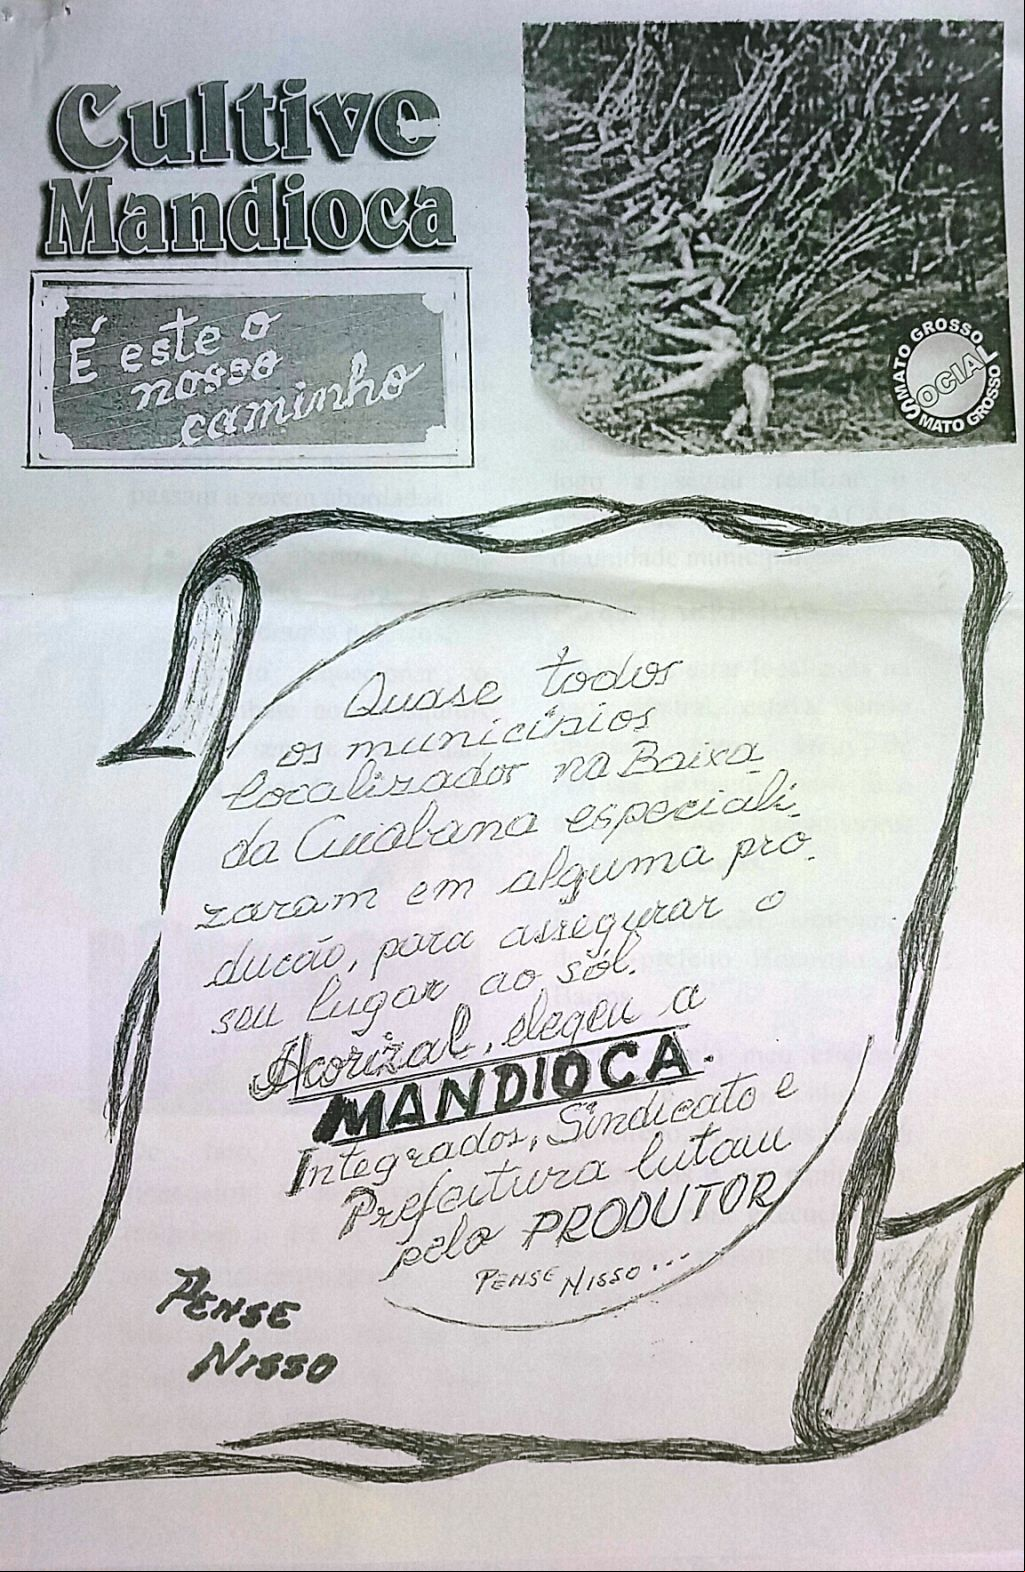 Cultive
Mandioca
É este o
nosso
caminho
MATO GROSSO
SOCIAL
MATO GROSSO
Quase todos
os municípios
localizador na Baixa
da Cuiabana especiali-
zaram em alguma pro-
ducão, para assegurar o
seu lugar ao sól.
Acorizal, elegeu a
MANDIOCA.
Integrados, Sindicato e
Prefeitura lutam
pelo PRODUTOR
PENSE NISSO...
PENSE
NISSO